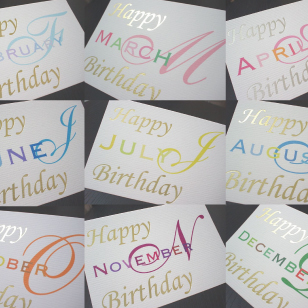 Happy
FEBRUARY F
Birthday
Happy
MARCH M
Birthday
Happy
APRIL
Birthday
Happy
JUNE J
Birthday
Happy
JULY J
Birthday
Happy
AUGUST
Birthday
Happy
OBER O
Birthday
Happy
NOVEMBER N
Birthday
Happy
DECEMBER
Birthday